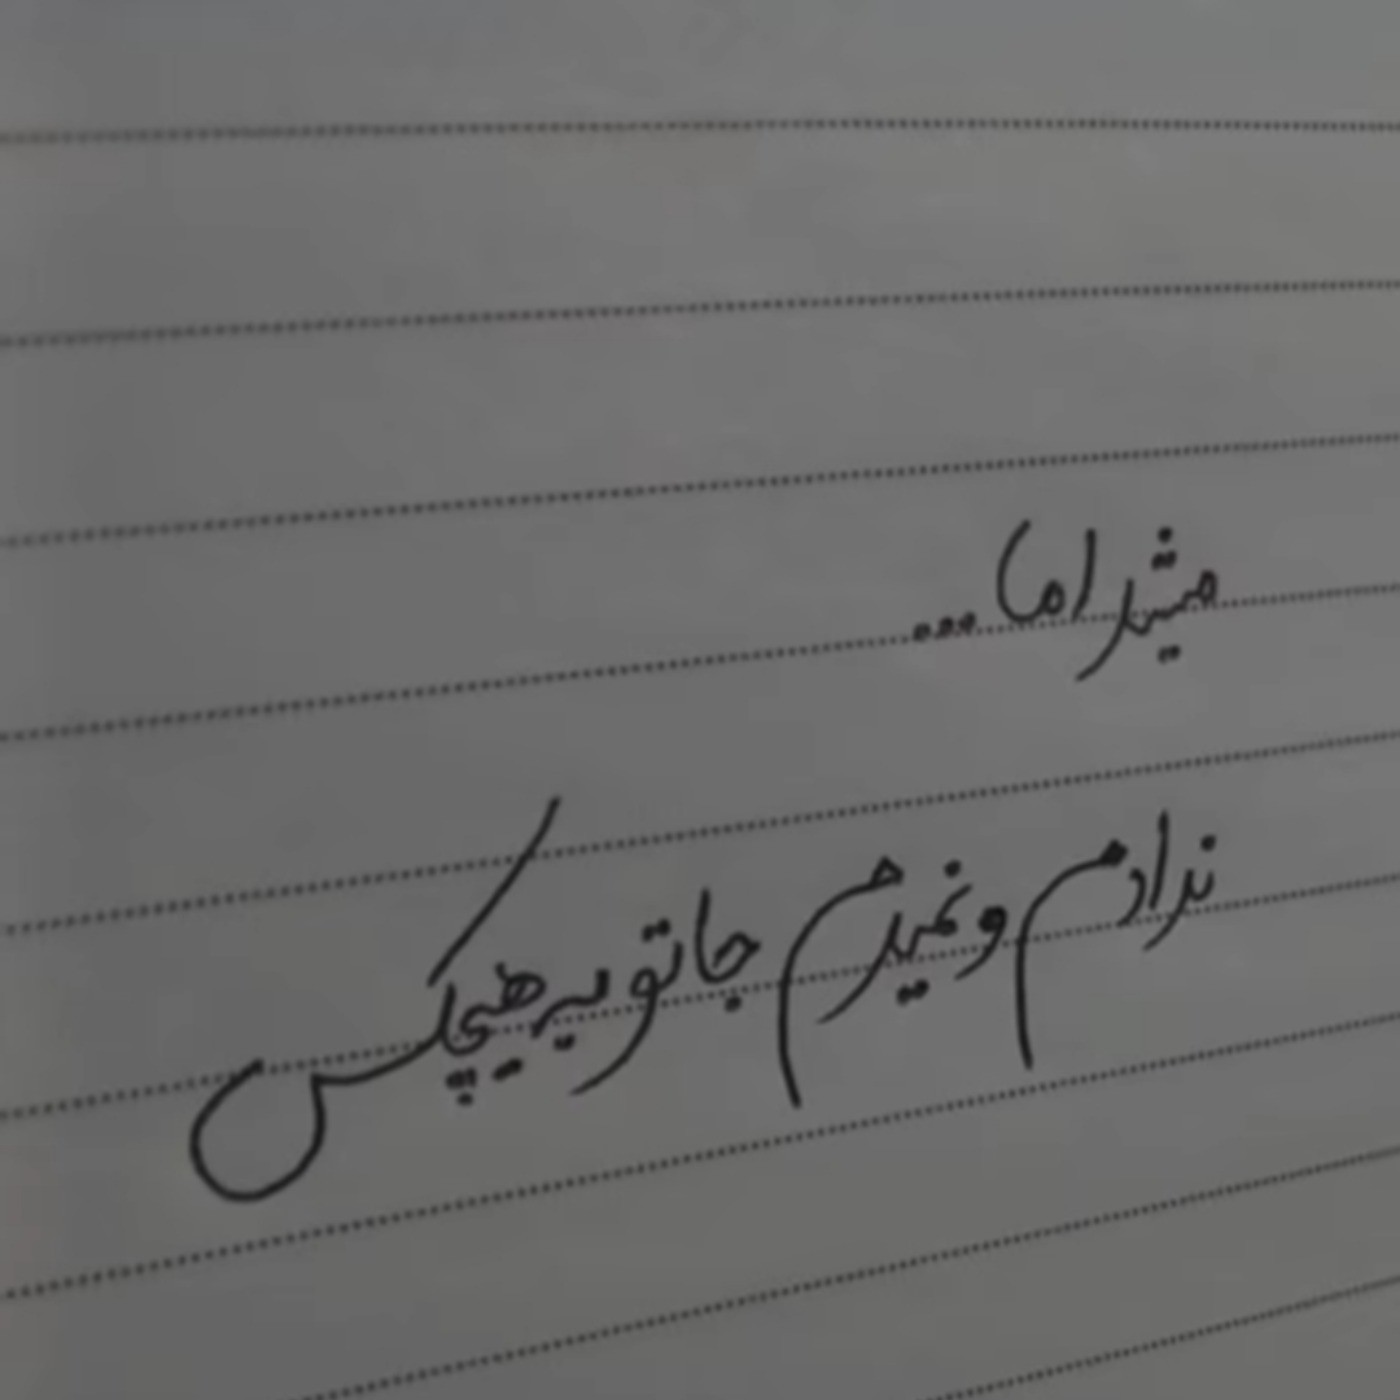 میشد اما...
ندارم و نمیدم جاتو به هیچکس